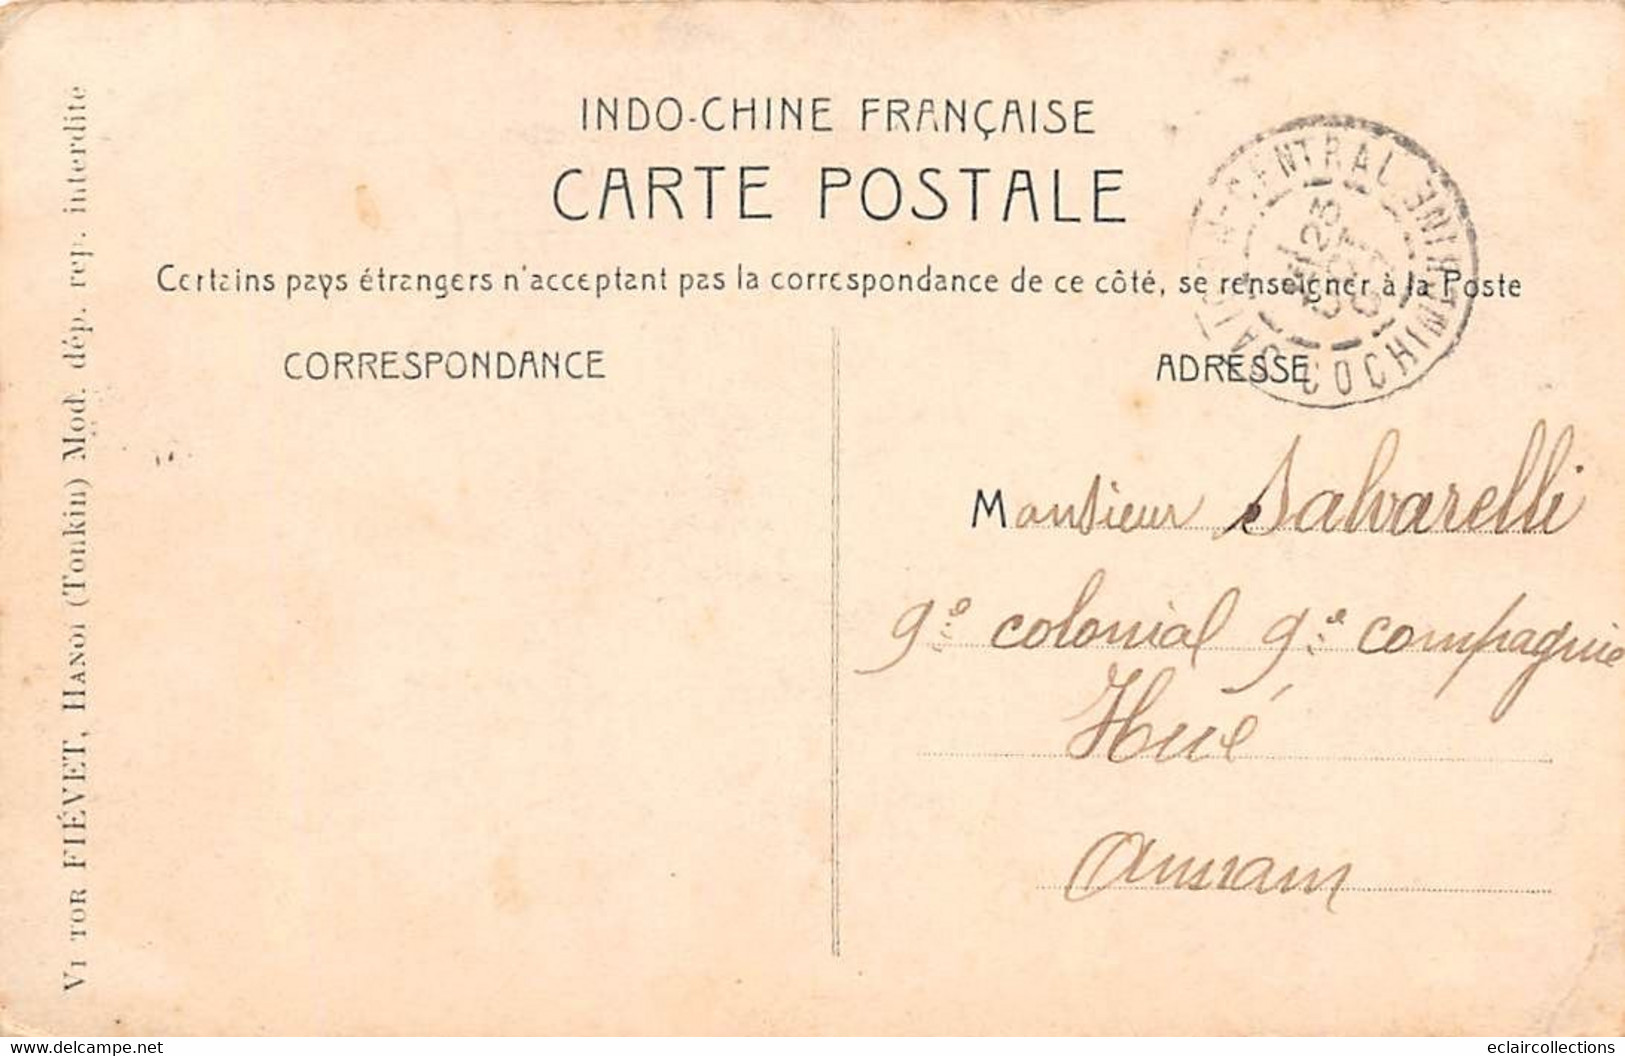 INDO-CHINE FRANÇAISE
CARTE POSTALE
Certains pays étrangers n'acceptant pas la correspondance de ce côté, se renseigner à la Poste
CORRESPONDANCE
ADRESSE
SAIGON-CENTRAL COCHINCHINE
23
Monsieur Salvarelli
9e colonial 9e compagnie
Hué
Annam
VI TOR FIÉVET, HANOI (Tonkin) Mod. dép. rep. interdite
www.delcampe.net
eclaircollections